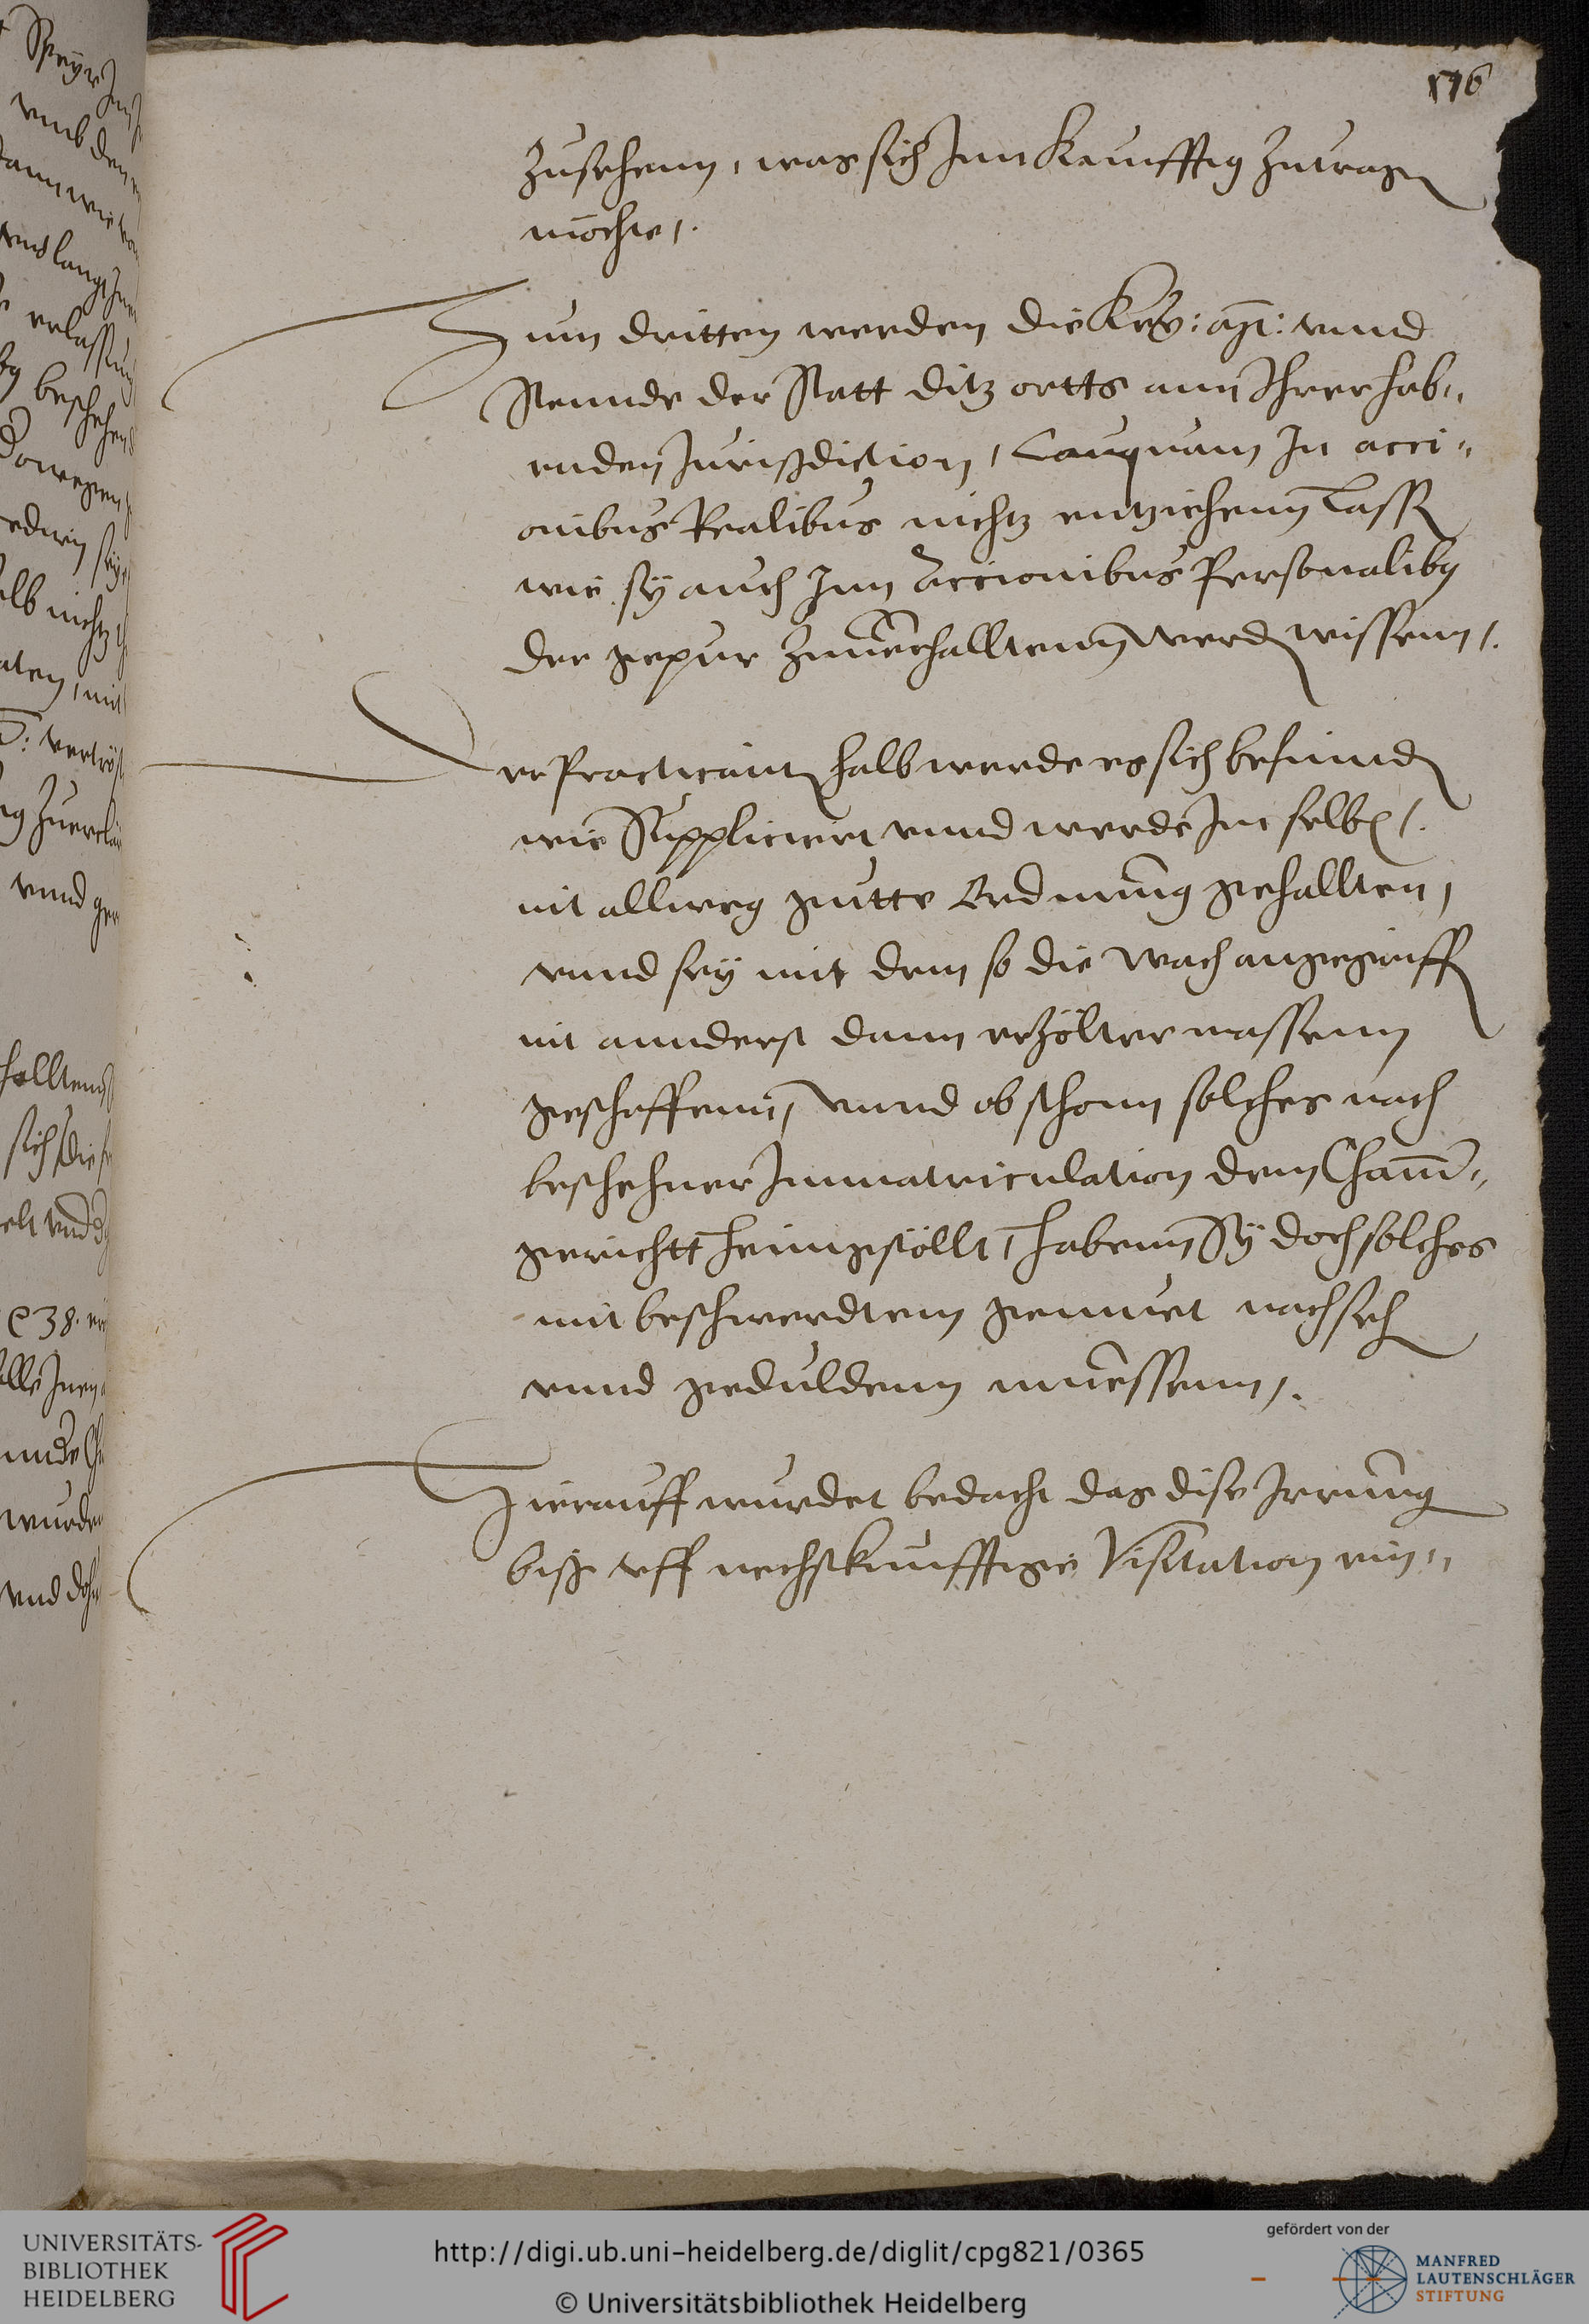 176
zusehenn, was sich Inn Kunfftig zutragen
möchte /.
Zum dritten werden die Key: Mt: vnnd
Stennde der Statt ditz ortts ann Ihrer hab„
enden Jurisdiction / tanquam In acci„
onibus Realibus nichtz entziehenn lassen
wie sy auch Inn Accionibus Personalibus
der gepur zuuerhalltenn werden wissenn /.
Der Practicanten halb werde es sich befinden
wie Suppliciert vnnd werde Im selben /.
nit allweg gutte Ordnung gehallten,
vnnd sey mit dem so die wach angegriffen
nit annderst dann erzölter massenn
geschaffenn, vnnd ob schonn solches nach
beschehner Immatriculation dem Cham„
gerichtt heimgestöllt, habenn Sy doch solches
mit beschwerdtem gemuet nachsehen
vnnd geduldenn muessenn /.
Hierauff wurdet bedacht das dise Irrung
bisz vff nechstkunfftige Visitation ein„
UNIVERSITÄTS-
BIBLIOTHEK
HEIDELBERG
http://digi.ub.uni-heidelberg.de/diglit/cpg821/0365
© Universitätsbibliothek Heidelberg
gefördert von der
MANFRED
LAUTENSCHLÄGER
STIFTUNG